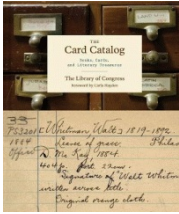 THE
Card Catalog
Books, Cards,
and Literary Treasures
The Library of Congress
Foreword by Carla Hayden
PS3201 Whitman, Walt, 1819-1892
1884 Leaves of grass.
Office Mc Kay, 1884
404 p. port. 22 cm.
Signature of Walt Whitman
written across title.
Original orange cloth.